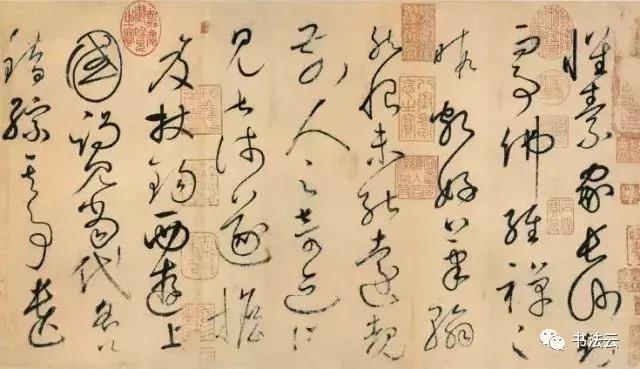 懷素家長沙幼
而事佛經禪之
暇頗好筆翰
然恨未能遠覩
前人之奇迹所
見甚淺遂擔
笈杖錫西遊上
國謁見當代名公
錯綜其事遺
嘉慶御覽之寶
书法云